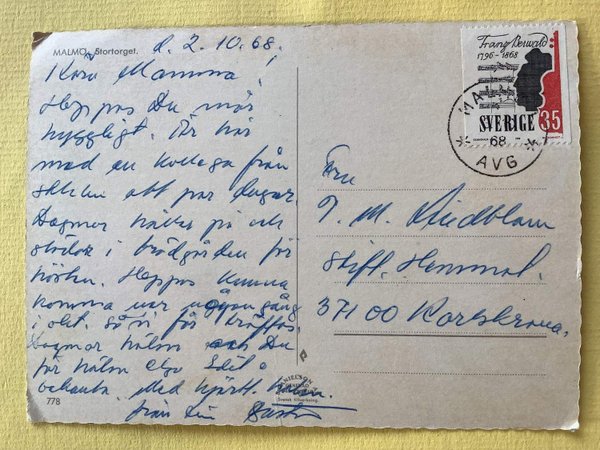 MALMÖ. Stortorget.
d. 2.10.68.
Kära Mamma!
Hoppas Du mår
hyggligt. Är här
med en kollega från
skolan ett par dagar.
Dagmar håller på och
i trädgården för
hösten. Hoppas kunna
komma ner någon gång
i okt. så vi får träffas.
Dagmar hälsar och Du
får hälsa
Med hjärtl.
från Din
778
Franz Berwald
1796-1868
SVERIGE 35
MAL
68
AVG
Fru
J. M. Lindblom
Skift. Hemmet.
371 00 Karlskrona.